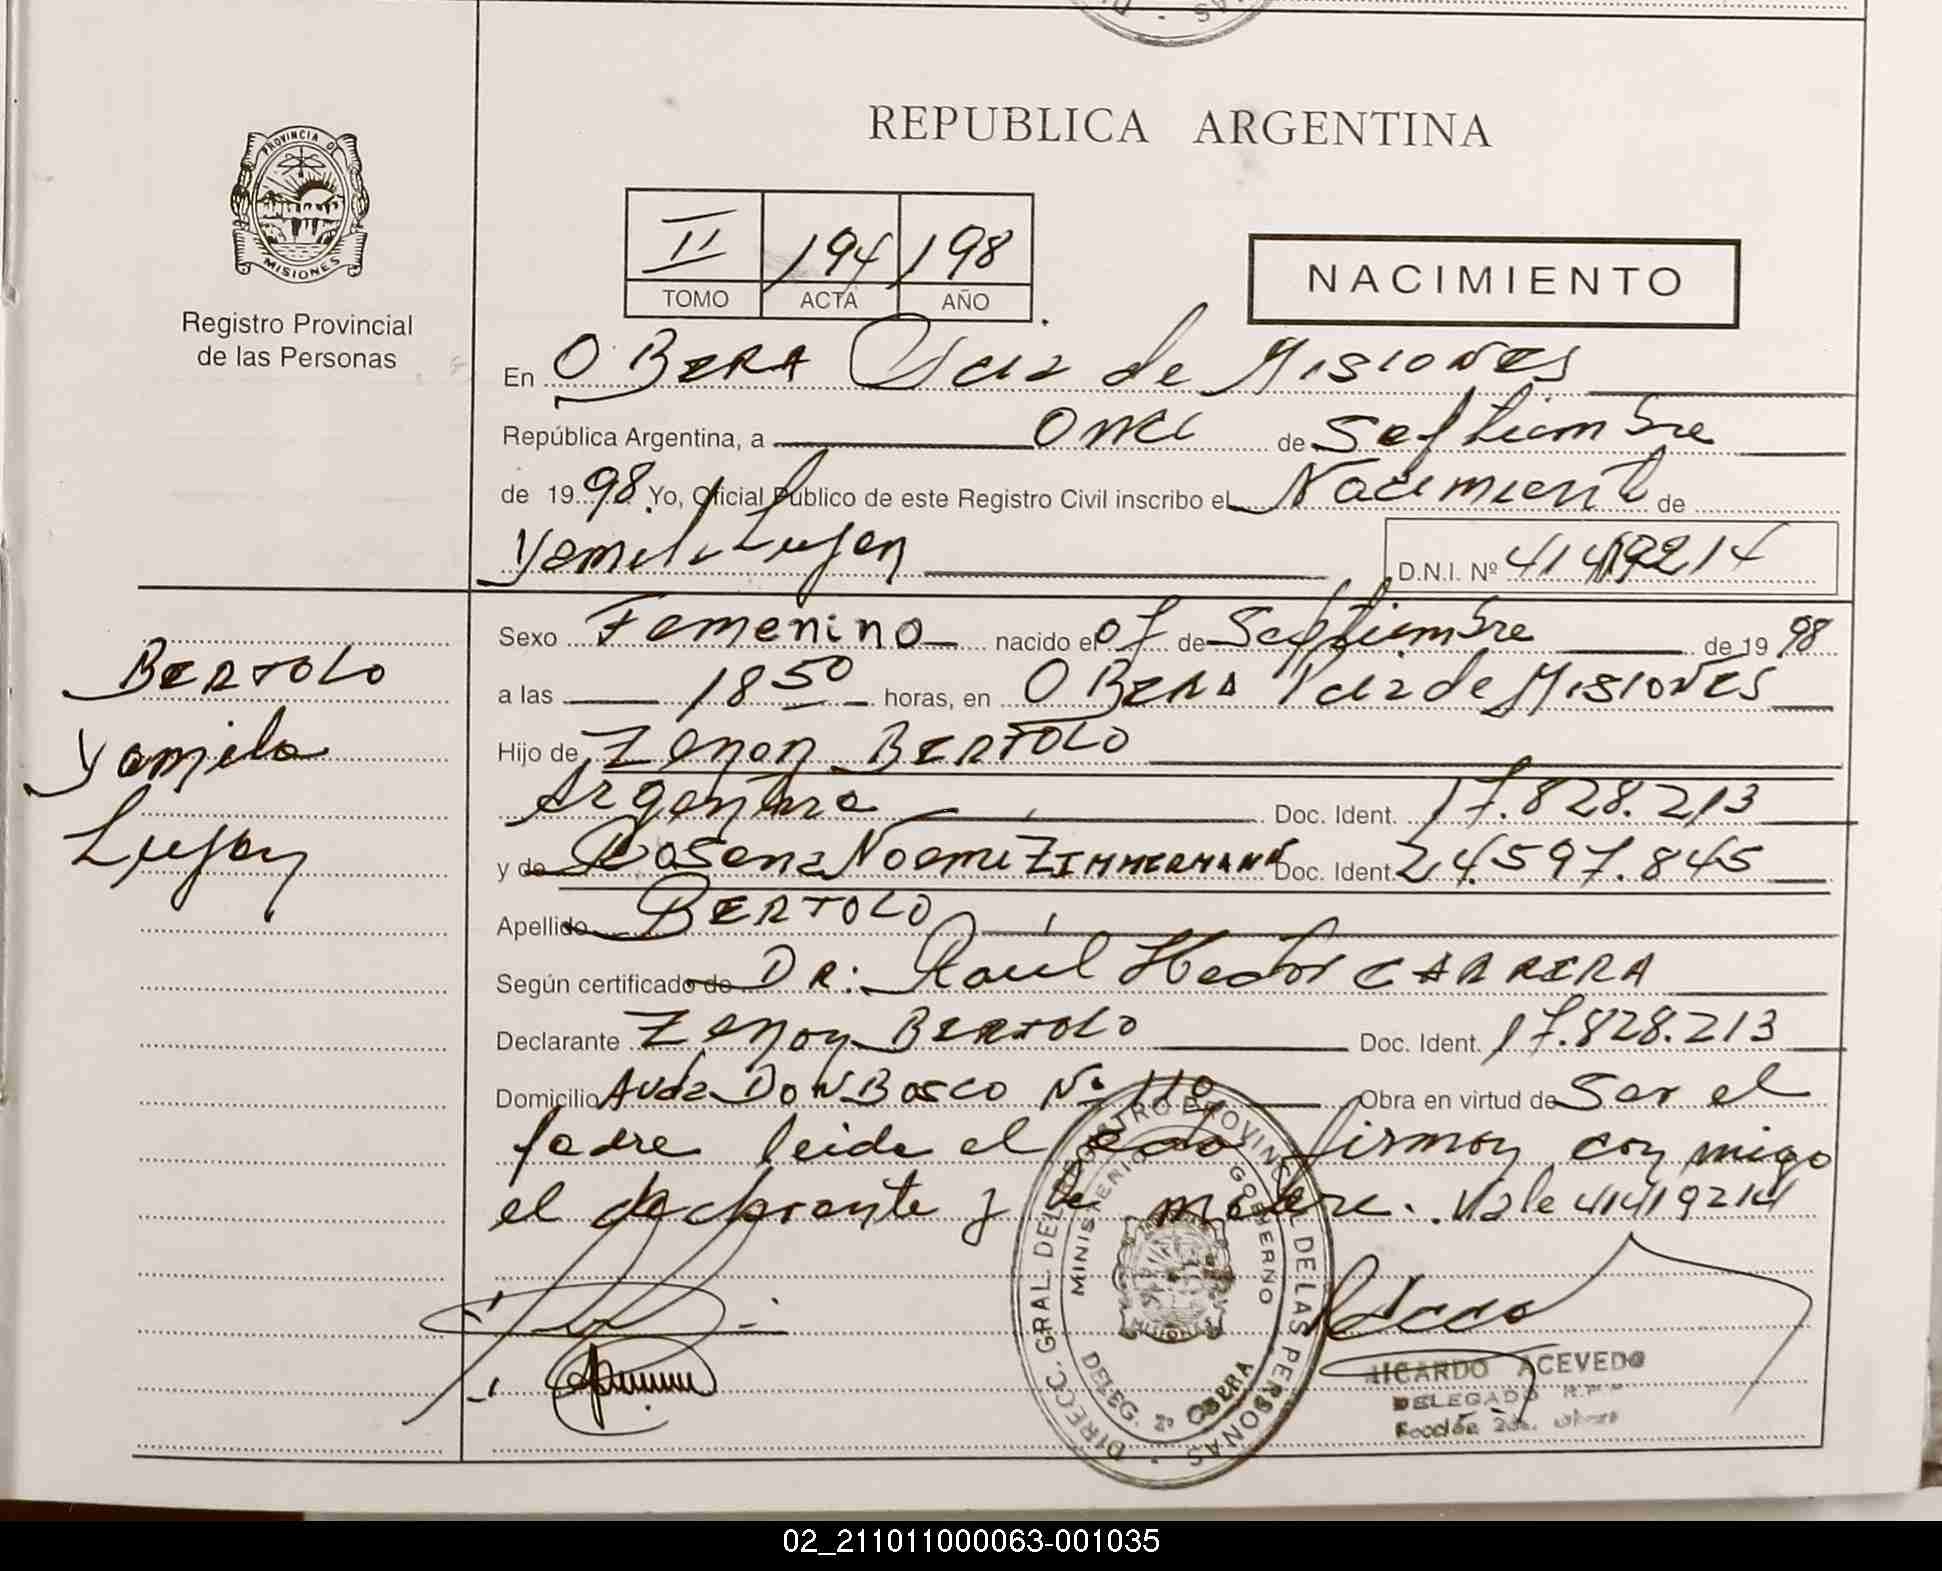 REPUBLICA ARGENTINA
PROVINCIA DE
MISIONES
Registro Provincial
de las Personas
II 194 198
TOMO ACTA AÑO
NACIMIENTO
En OBERA Pcia de MISIONES
República Argentina, a once de Septiembre
de 1998. Yo, Oficial Público de este Registro Civil inscribo el Nacimiento de
Yamila Lujan
D.N.I. Nº 41419214
BERTOLO
Yamila
Lujan
Sexo Femenino nacido el 07 de Septiembre de 1998
a las 18 50 horas, en OBERA Pcia de MISIONES
Hijo de Zenon BERTOLO
Argentina Doc. Ident. 17.828.213
y de Rosana Noemi ZIMMERMANN Doc. Ident. 24.597.845
Apellido BERTOLO
Según certificado de DR: Raul Hector CARRERA
Declarante Zenon BERTOLO Doc. Ident. 17.828.213
Domicilio Avda DON BOSCO Nº 110 Obra en virtud de Ser el
padre leida el acta firman conmigo
el declarante y la madre. Vale 41419214
DIRECC. GRAL. DEL REGISTRO PROVINCIAL DE LAS PERSONAS
MINISTERIO GOBIERNO
MISIONES
DELEG. 2ª OBERA
RICARDO ACEVEDO
DELEGADO
02_211011000063-001035